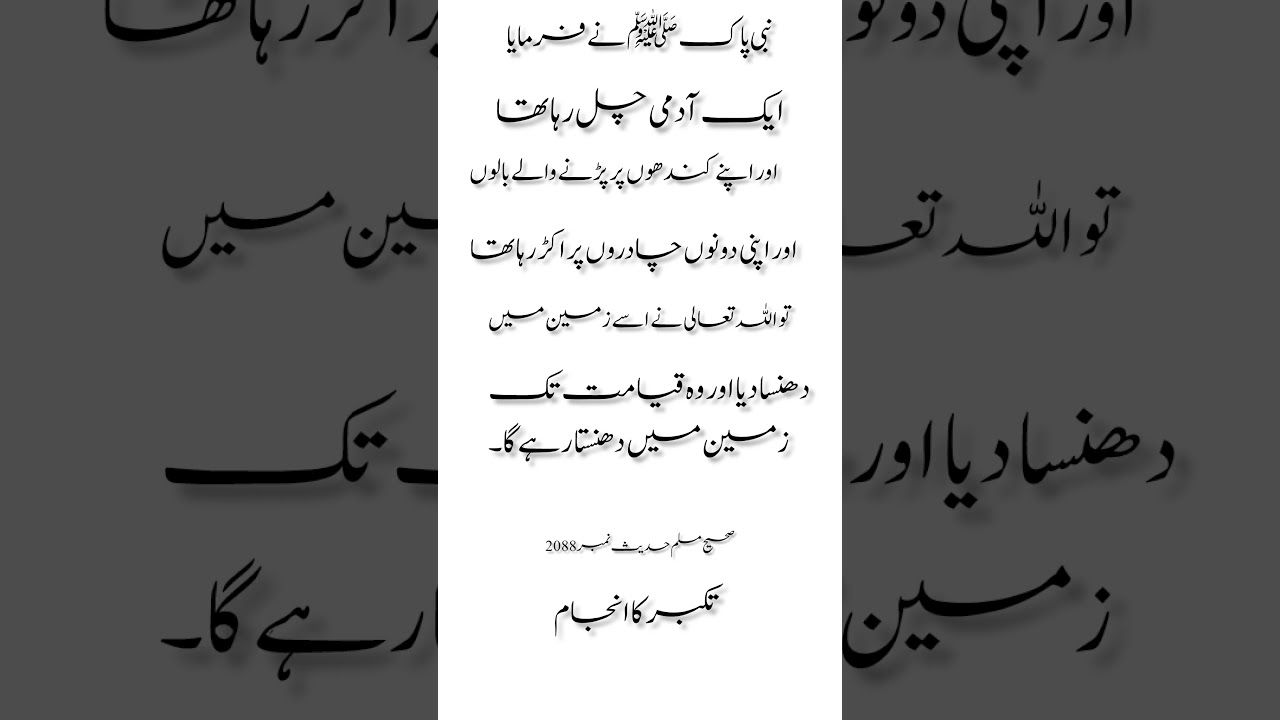 نبی پاک ﷺ نے فرمایا
ایک آدمی چل رہا تھا
اور اپنے کندھوں پر پڑنے والے بالوں
اور اپنی دونوں چادروں پر اکڑ رہا تھا
تو اللہ تعالی نے اسے زمین میں
دھنسا دیا اور وہ قیامت تک
زمین میں دھنستا رہے گا۔
صحیح مسلم حدیث نمبر 2088
تکبر کا انجام